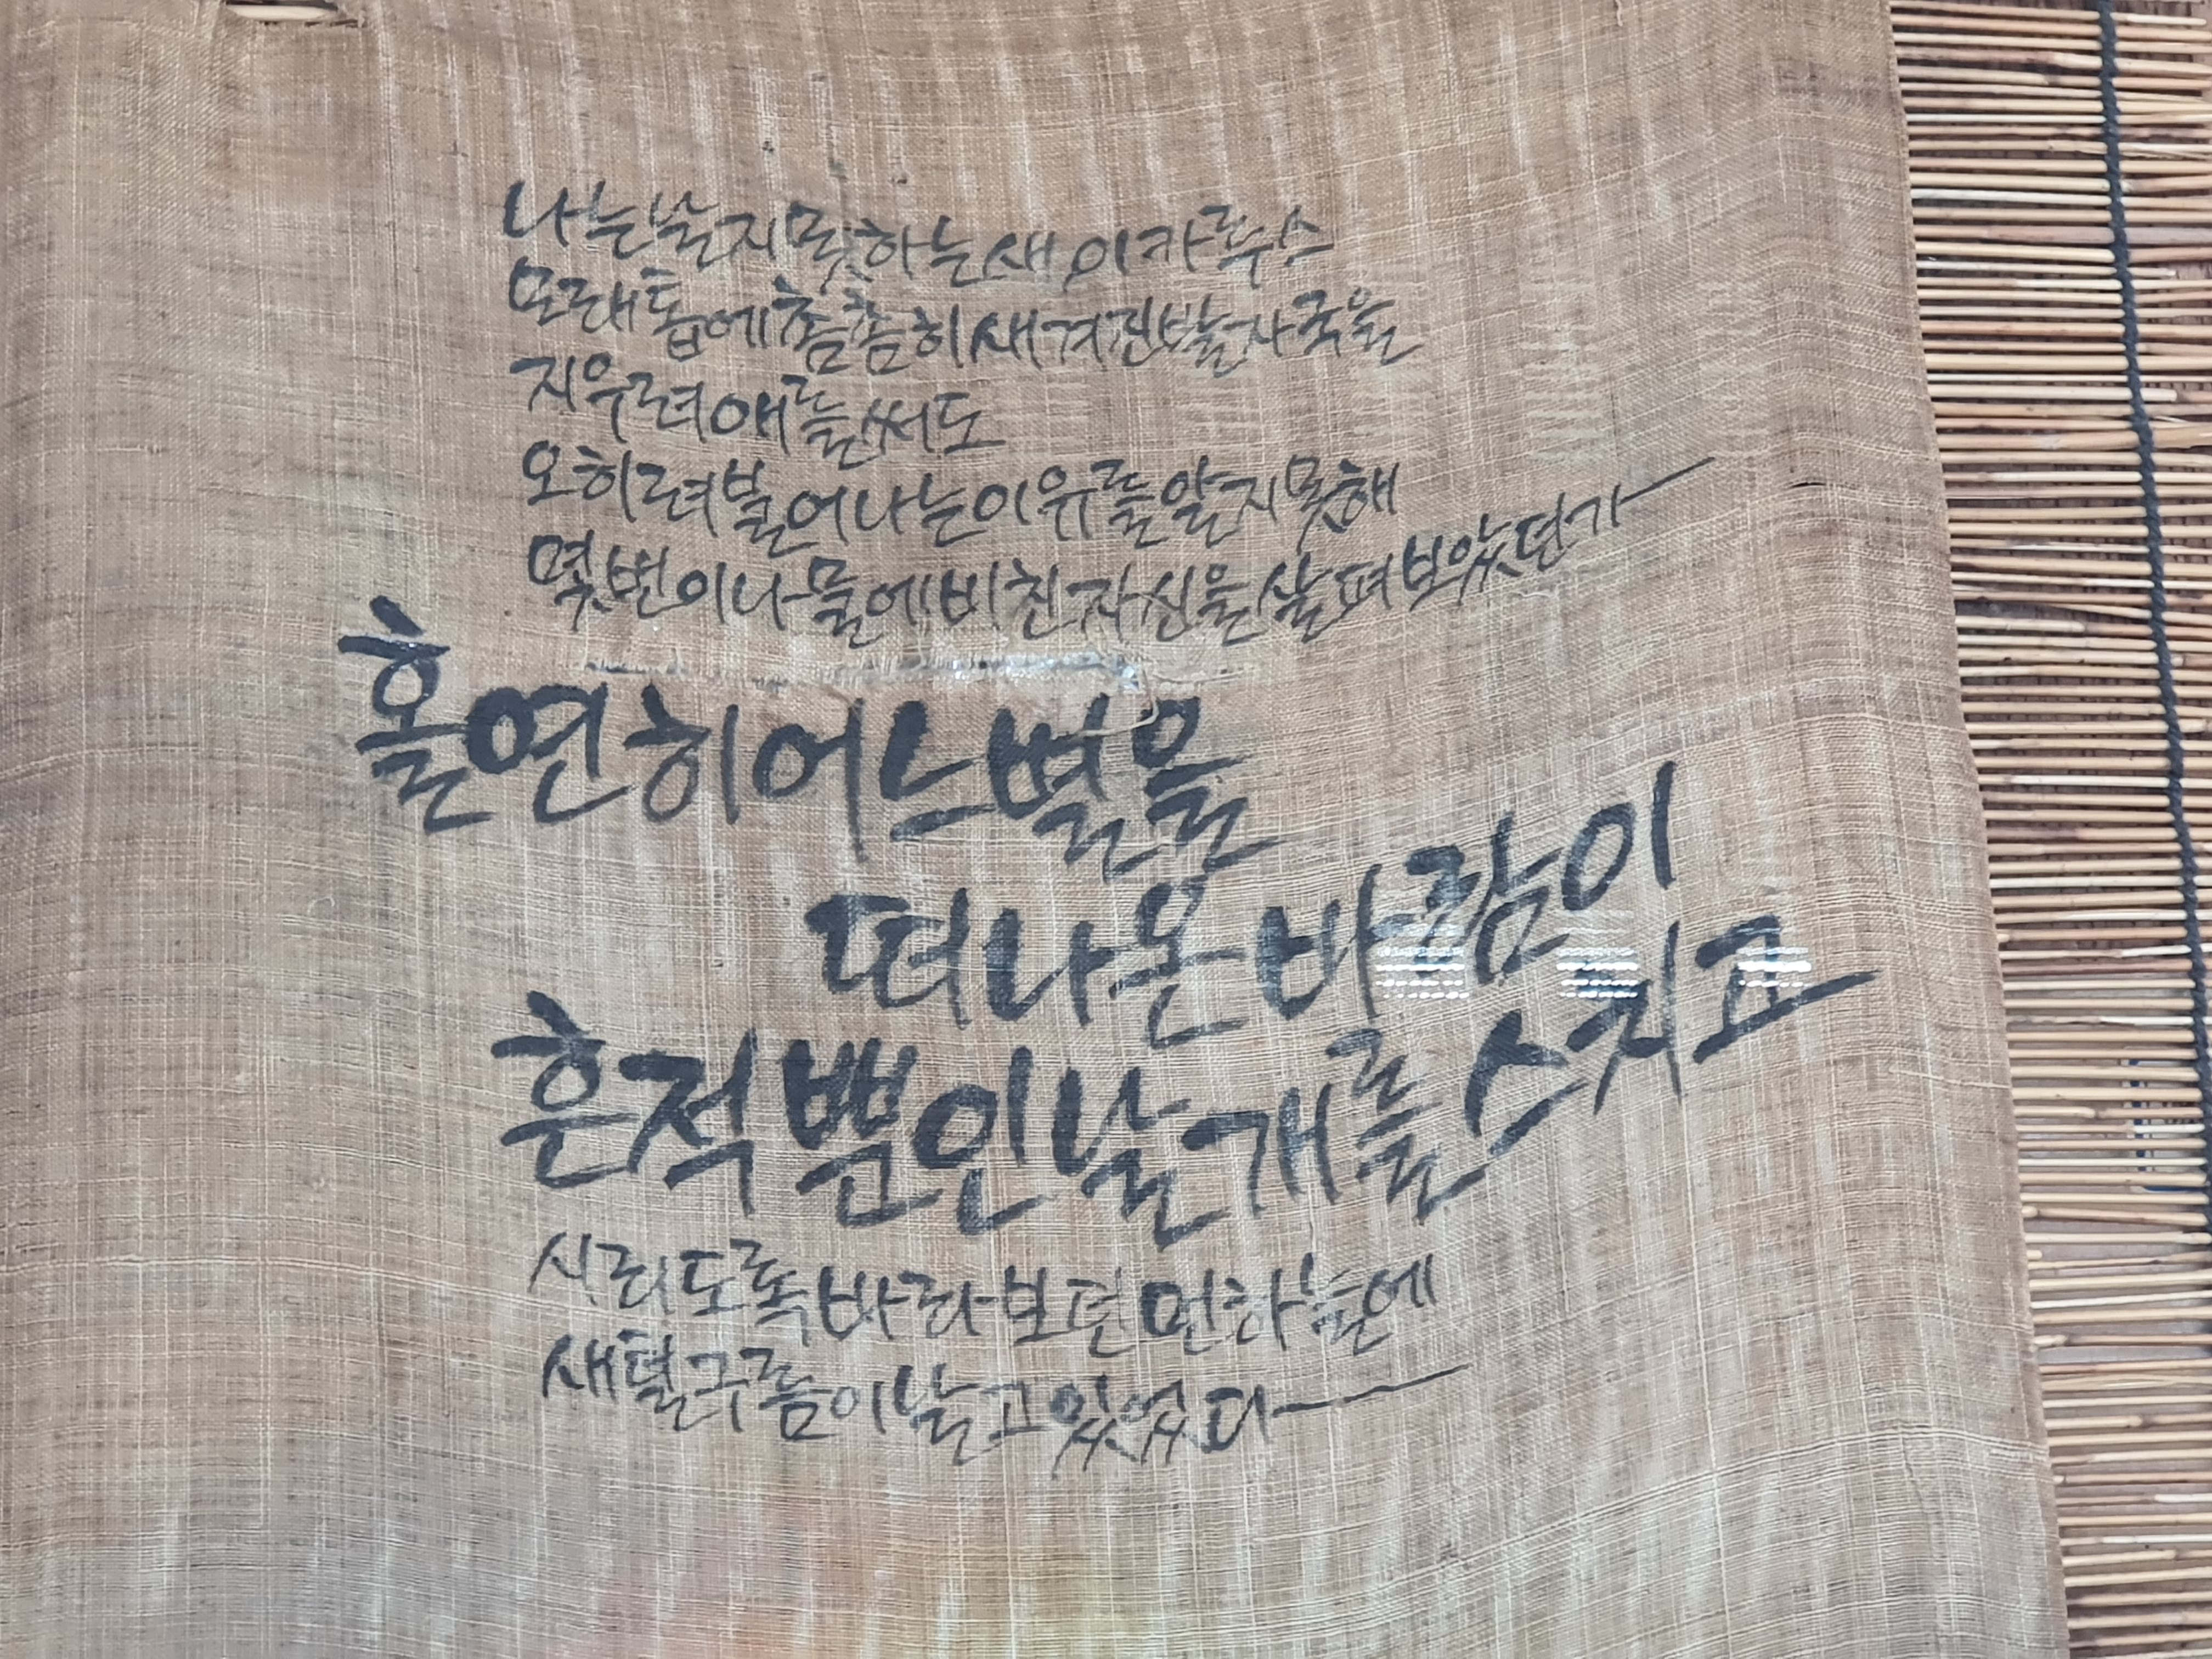 나는 날지 못하는 새 이카루스
모래톱에 촘촘히 새겨진 발자국을
지우려 애를 써도
오히려 불어나는 이유를 알지 못해
몇 번이나 물에 비친 자신을 살펴보았던가
홀연히 어느 별을
떠나온 바람이
흔적뿐인 날개를 스치고
시리도록 바라보던 먼 하늘에
새털구름이 날고 있었다